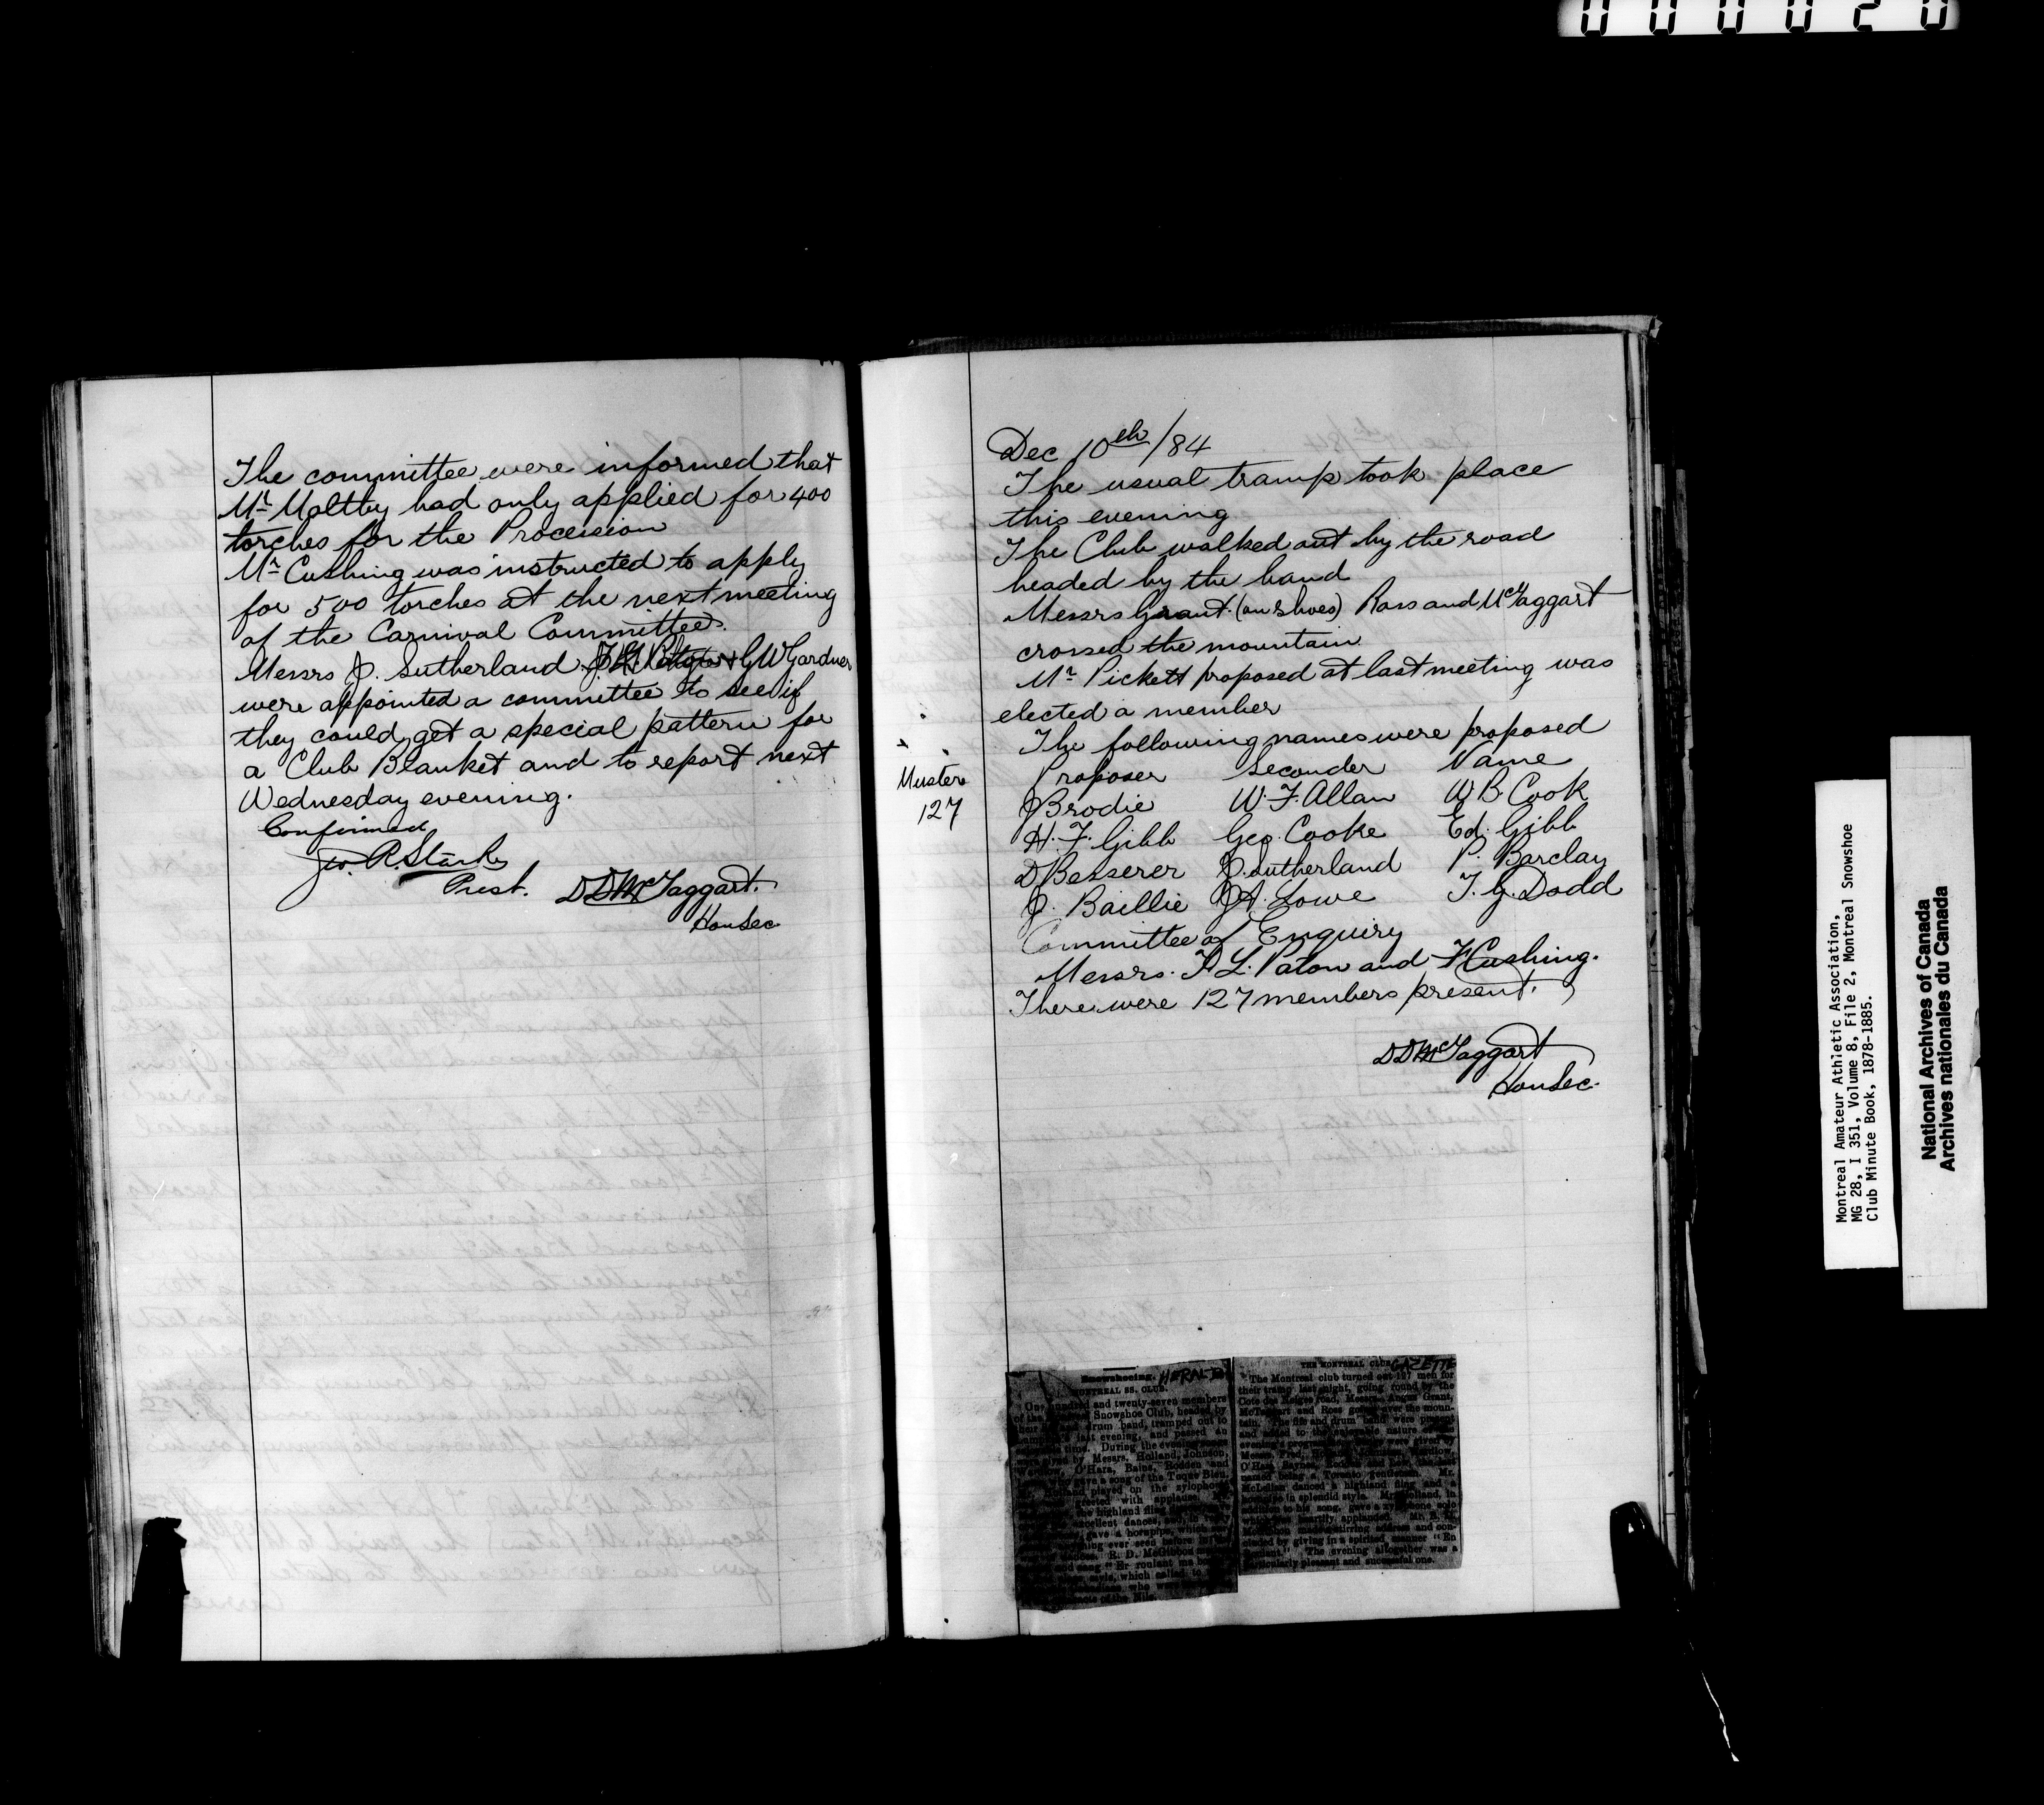 000020
The committee were informed that
Mr Maltby had only applied for 400
torches for the Procession
Mr Cushing was instructed to apply
for 500 torches at the next meeting
of the Carnival Committee.
Messrs J. Sutherland & GW Gardner
were appointed a committee to see if
they could get a special pattern for
a Club Blanket and to report next
Wednesday evening.
Confirmed
Geo. R. Starke
Prest.
DD McTaggart.
Hon Sec
Dec 10th/84
The usual tramp took place
this evening
The Club walked out by the road
headed by the band
Messrs Grant (on shoes) Ross and McTaggart
crossed the mountain
Mr Pickett proposed at last meeting was
elected a member
The following names were proposed
Muster
127
Proposer Seconder Name
J Brodie W. F. Allan W B Cook
H. F. Gibb Geo. Cooke Ed. Gibb
D Besserer J. Sutherland P. Barclay
J. Baillie JA. Lowe T. G. Dodd
Committee of Enquiry
Messrs. L. Paton and F Cushing.
There were 127 members present.
DD McTaggart
Hon Sec.
Snowshoeing. HERALD
MONTREAL SS. CLUB.
One hundred and twenty-seven members
of the Snowshoe Club, headed by
drum band, tramped out to
last evening, and passed an
time. During the evening
by Messrs. Holland, Johnson,
O'Hara, Bains, Hodden and
gave a song of the Toque Bleu.
played on the xylophone
greeted with applause.
the highland fling
excellent dances,
gave a hornpipe, which
ever seen before
R. D. McGibbon
song "En roulant ma
style, which called to
who were
of the Nile.
THE MONTREAL CLUB. GAZETTE
The Montreal club turned out 127 men for
their tramp last night, going round by the
Cote des Neiges road, Messrs. Angus Grant,
McTaggart and Ross going over the moun-
tain. The fife and drum band were present
and added to the enjoyable nature
evening's
Messrs. Fred.
O'Hara, Baynes,
named being a Toronto gentleman. Mr.
McLellan danced a highland fling and a
in splendid style. Mr. Holland, in
addition to his song, gave a solo
which was heartily applauded. Mr. R. D.
stirring address and con-
cluded by giving in a spirited manner "En
Roulant." The evening altogether was a
particularly pleasant and successful one.
Montreal Amateur Athletic Association,
MG 28, I 351, Volume 8, File 2, Montreal Snowshoe
Club Minute Book, 1878-1885.
National Archives of Canada
Archives nationales du Canada